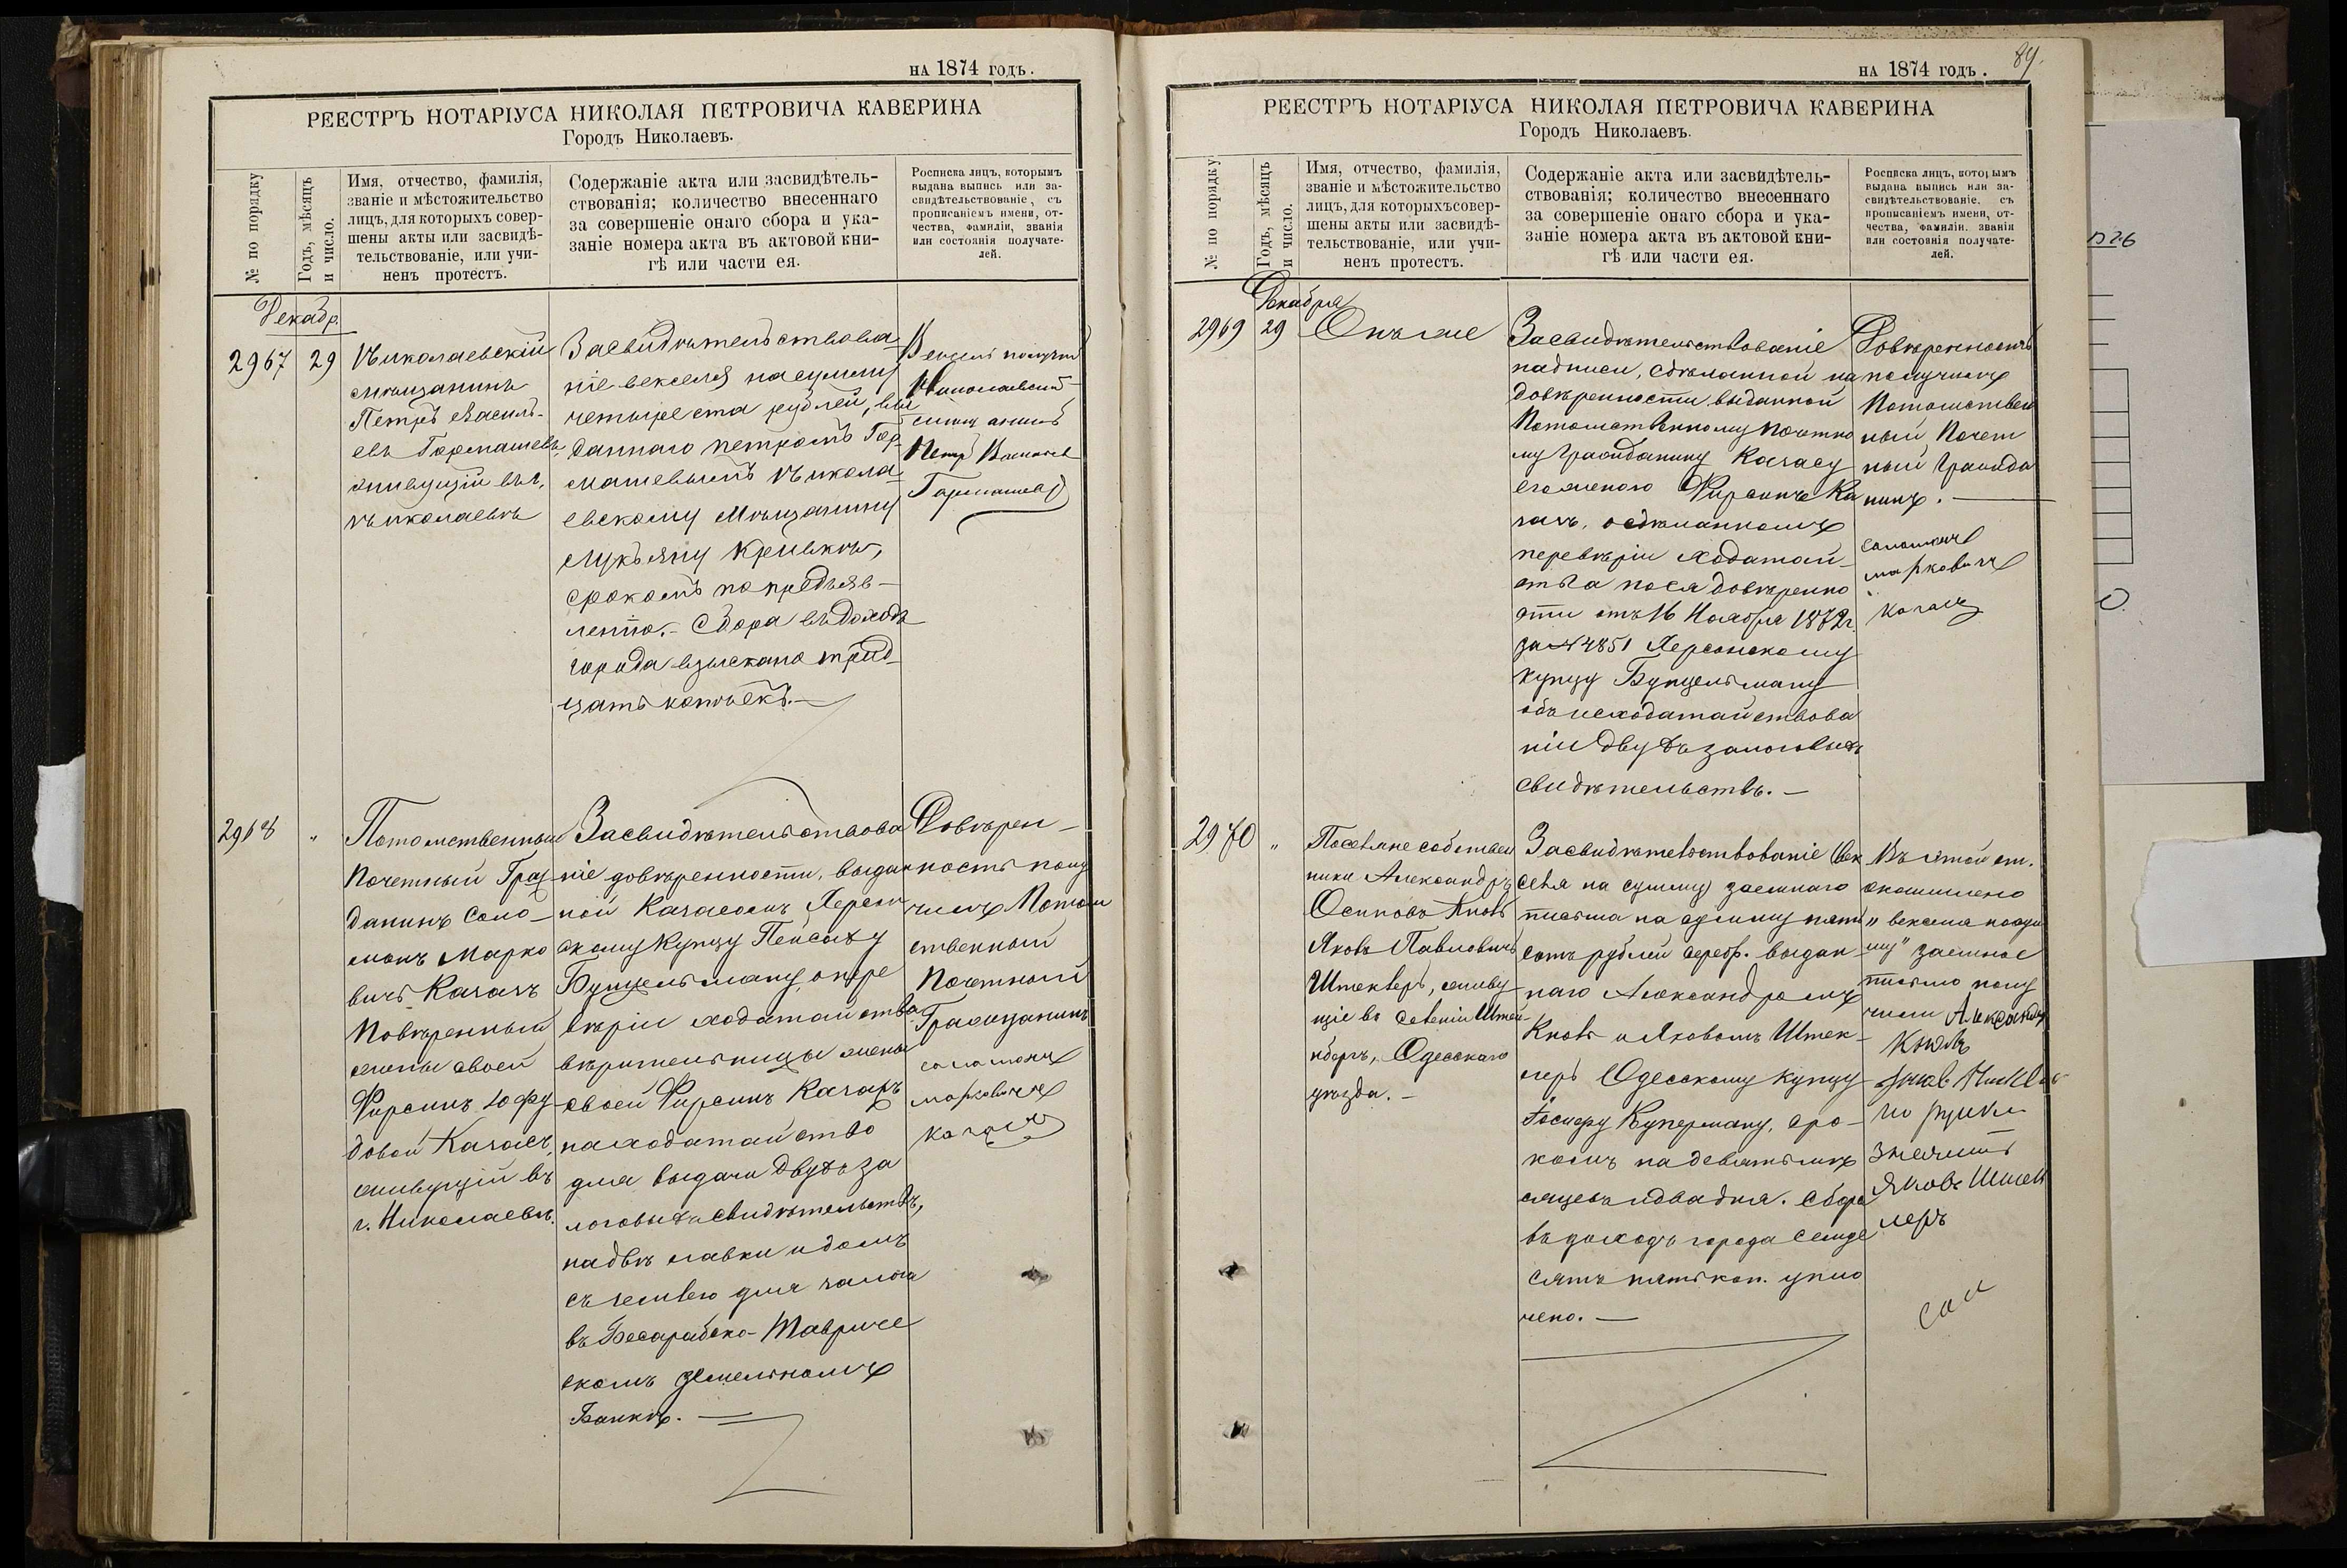 НА 1874 ГОДЪ.
РЕЕСТРЪ НОТАРІУСА НИКОЛАЯ ПЕТРОВИЧА КАВЕРИНА
Городъ Николаевъ.
№ по порядку
Годъ, мѣсяцъ
и число.
Имя, отчество, фамилія,
званіе и мѣстожительство
лицъ, для которыхъ совер-
шены акты или засвидѣ-
тельствованіе, или учи-
ненъ протестъ.
Содержаніе акта или засвидѣтель-
ствованія; количество внесеннаго
за совершеніе онаго сбора и ука-
заніе номера акта въ актовой кни-
гѣ или части ея.
Росписка лицъ, которымъ
выдана выпись или за-
свидѣтельствованіе, съ
прописаніемъ имени, от-
чества, фамиліи, званія
или состоянія получате-
лей.
Декабр.
2967
29
Николаевскій
мѣщанинъ
Петръ Василь-
евъ Гармашевъ,
живущій въ г.
Николаевѣ
Засвидѣтельствова-
ніе векселя на сумму
четыреста рублей, вы
даннаго Петромъ Гар-
машевымъ Никола-
евскому мѣщанину
Лукьяну Кривкѣ,
срокомъ по предъяв-
ленію. - Сбора въ доходъ
города взыскано трид-
цать копѣекъ. -
Вексель получилъ
Николаевский
мѣщанинъ
Петръ Васильевъ
Гармашевъ
2968
"
Потомственный
Почетный Граж
данинъ Соло-
монъ Марко
вичъ Качасъ
Повѣренный
жены своей
Фирсинъ Юфу
довой Качасъ,
живущій въ
г. Николаевѣ.
Засвидѣтельствова
ніе довѣренности, выдан
ной Качасомъ Херсон
скому Купцу Пейсаху
Бунцельману, о пере
вѣріи ходатайства
вѣрительницы жены
своей Фирсинъ Качасъ
на ходатайство
для выдачи двухъ за
логовыхъ свидѣтельствъ,
на двѣ лавки и домъ
съ землею для залога
въ Бесарабско-Тавриче
скомъ Земельномъ
Банкѣ. -
Довѣрен-
ность полу
чилъ Потом
ственный
Почетный
Гражданинъ
Саломонъ
Марковичъ
Качасъ
НА 1874 ГОДЪ.
84.
РЕЕСТРЪ НОТАРІУСА НИКОЛАЯ ПЕТРОВИЧА КАВЕРИНА
Городъ Николаевъ.
№ по порядку
Годъ, мѣсяцъ
и число.
Имя, отчество, фамилія,
званіе и мѣстожительство
лицъ, для которыхъ совер-
шены акты или засвидѣ-
тельствованіе, или учи-
ненъ протестъ.
Содержаніе акта или засвидѣтель-
ствованія; количество внесеннаго
за совершеніе онаго сбора и ука-
заніе номера акта въ актовой кни-
гѣ или части ея.
Росписка лицъ, которымъ
выдана выпись или за-
свидѣтельствованіе, съ
прописаніемъ имени, от-
чества, фамиліи, званія
или состоянія получате-
лей.
Декабря
2969
29
Онъ же
Засвидѣтельствованіе
надписи, сдѣланной на
довѣренности выданной
Потомственному Почетно
му Гражданину Качасу
его женою Фирсинъ Ка
часъ, о сдѣланномъ
перевѣріи ходатай-
ства по сей довѣренно
сти отъ 16 Ноября 1872 г.
за № 4851 Херсонскому
купцу Бунцельману
объ исходатайствова
ніи двухъ залоговыхъ
свидѣтельствъ. -
Довѣренность
получилъ
Потомствен
ный Почет
ный Гражда
нинъ. -
Саломонъ
Марковичъ
Качасъ
2970
"
Поселяне собствен
ники Александръ
Осиповъ Кновъ
Яковъ Павловичъ
Штеклеръ, живу
щіе въ селеніи Штей-
нбергъ, Одесскаго
уѣзда. -
Засвидѣтельствованіе (век
селя на сумму) заемнаго
письма на сумму пять
сотъ рублей сереб. выдан-
наго Александромъ
Кновъ и Яковомъ Штек-
леръ Одесскому купцу
Госиеру Куперману, сро-
комъ на девять мѣ
сяцевъ и два дня. Сбора
въ доходъ города семде
сятъ пять коп. упло
чено. -
Въ этой ст.
" векселя на сум
му" заемное
письмо полу
чили Александръ
Кновъ
значитъ
Яковъ Штек
леръ